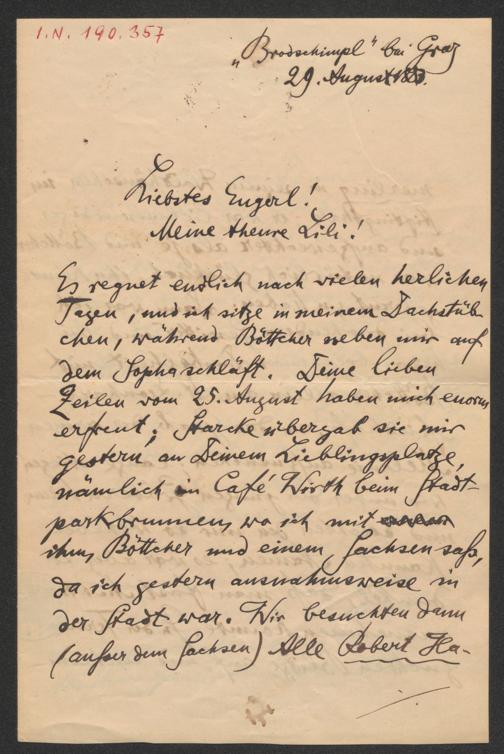 I.N. 190.357
„Brodschimpl“ bei Graz
29. August
Liebstes Engerl!
Meine theure Lili!
Es regnet endlich nach vielen herlichen
Tagen, und ich sitze in meinem Dachstüb-
chen, während Böttcher neben mir auf
dem Sopha schläft. Deine lieben
Zeilen vom 25. August haben mich enorm
erfreut; Starcke übergab sie mir
gestern, an Deinem Lieblingsplatze,
nämlich im Café Wirth beim Stadt-
parkbrunnen, wo ich mit
ihm, Böttcher und einem Sachsen saß,
da ich gestern ausnahmsweise in
der Stadt war. Wir besuchten dann
(außer dem Sachsen) Alle Robert Ha-